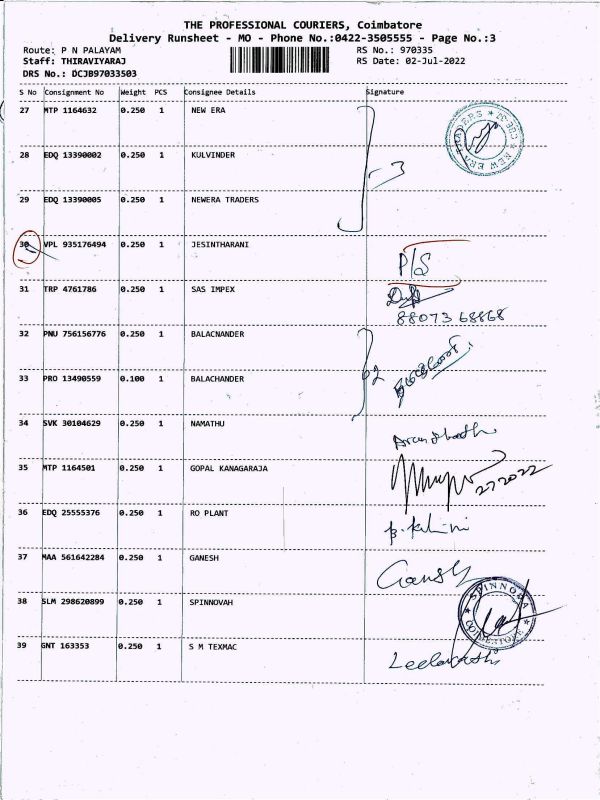 THE PROFESSIONAL COURIERS, Coimbatore
Delivery Runsheet - MO - Phone No.:0422-3505555 - Page No.:3
Route: P N PALAYAM
RS No.: 970335
Staff: THIRAVIYARAJ
RS Date: 02-Jul-2022
DRS No.: DCJB97033503
S No Consignment No Weight PCS Consignee Details Signature
27 MTP 1164632 0.250 1 NEW ERA
NEW ERA TRADERS ★ CBE-37 ★
28 EDQ 13390002 0.250 1 KULVINDER
3
29 EDQ 13390005 0.250 1 NEWERA TRADERS
30 VPL 935176494 0.250 1 JESINTHARANI
P/S
31 TRP 4761786 0.250 1 SAS IMPEX
88073 68868
32 PNU 756156776 0.250 1 BALACNANDER
2
33 PRO 13490559 0.100 1 BALACHANDER
34 SVK 30104629 0.250 1 NAMATHU
35 MTP 1164501 0.250 1 GOPAL KANAGARAJA
272022
36 EDQ 25555376 0.250 1 RO PLANT
37 MAA 561642284 0.250 1 GANESH
Ganesh
38 SLM 298620899 0.250 1 SPINNOVAH
COIMBATORE
39 GNT 163353 0.250 1 S M TEXMAC